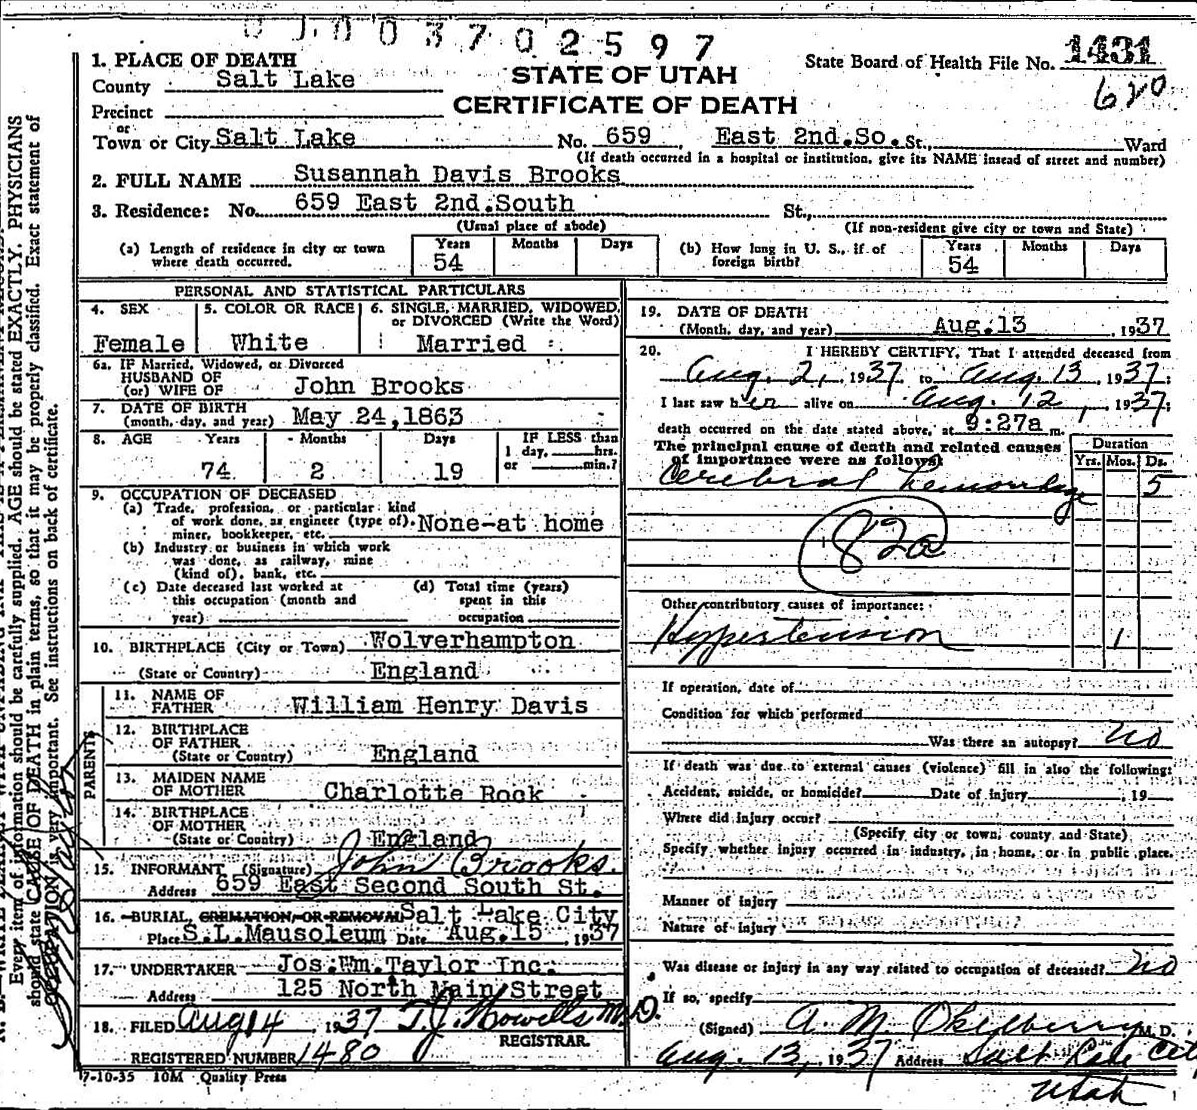 0 0 0 3 7 0 2 5 9 7
1. PLACE OF DEATH
County Salt Lake
STATE OF UTAH
CERTIFICATE OF DEATH
State Board of Health File No. 1431
620
Precinct
or
Town or City Salt Lake No. 659 East 2nd.So. St., Ward
(If death occurred in a hospital or institution, give its NAME insead of street and number)
2. FULL NAME Susannah Davis Brooks
3. Residence: No. 659 East 2nd.South St.,
(Usual place of abode) (If non-resident give city or town and State)
(a) Length of residence in city or town where death occurred. Years 54 Months Days
(b) How long in U. S., if of foreign birth? Years 54 Months Days
PERSONAL AND STATISTICAL PARTICULARS
4. SEX Female
5. COLOR OR RACE White
6. SINGLE, MARRIED, WIDOWED, or DIVORCED (Write the Word) Married
6a. IF Married, Widowed, or Divorced
HUSBAND OF
(or) WIFE OF John Brooks
7. DATE OF BIRTH
(month, day, and year) May 24,1863
8. AGE Years 74 Months 2 Days 19
IF LESS than
1 day, hrs.
or min.?
9. OCCUPATION OF DECEASED
(a) Trade, profession, or particular kind
of work done, as engineer (type of). None-at home
miner, bookkeeper, etc.
(b) Industry or business in which work
was done, as railway, mine
(kind of), bank, etc.
(c) Date deceased last worked at
this occupation (month and
year)
(d) Total time (years)
spent in this
occupation
10. BIRTHPLACE (City or Town) Wolverhampton
(State or Country) England
PARENTS
11. NAME OF
FATHER William Henry Davis
12. BIRTHPLACE
OF FATHER
(State or Country) England
13. MAIDEN NAME
OF MOTHER Charlotte Rock
14. BIRTHPLACE
OF MOTHER
(State or Country) England
15. INFORMANT (Signature) John Brooks.
Address 659 East Second South St.
16. BURIAL, CREMATION, OR REMOVAL Salt Lake City
Place S.L.Mausoleum Date Aug.15, 1937
17. UNDERTAKER Jos.Wm.Taylor Inc.
Address 125 North Main Street
18. FILED Aug 14, 1937 T.J. Howells M.D.
REGISTRAR.
REGISTERED NUMBER 1480
7-10-35 10M Quality Press
19. DATE OF DEATH
(Month, day, and year) Aug.13, 1937
20. I HEREBY CERTIFY, That I attended deceased from
Aug. 2, 1937 to Aug. 13, 1937;
I last saw her alive on Aug. 12, 1937;
death occurred on the date stated above, at 9:27a m.
The principal cause of death and related causes
of importance were as follows:
Duration
Yrs. Mos. Ds.
Cerebral hemorrhage 5
82a
Other contributory causes of importance:
Hypertension 1
If operation, date of
Condition for which performed
Was there an autopsy? No
If death was due to external causes (violence) fill in also the following:
Accident, suicide, or homicide? Date of injury, 19
Where did injury occur?
(Specify city or town, county and State)
Specify whether injury occurred in industry, in home, or in public place.
Manner of injury
Nature of injury
Was disease or injury in any way related to occupation of deceased? No
If so, specify
(Signed) A. M. Okelberry M. D.
Aug. 13, 1937 Address Salt Lake City
Utah
Every item of information should be carefully supplied. AGE should be stated EXACTLY. PHYSICIANS
should state CAUSE OF DEATH in plain terms, so that it may be properly classified. Exact statement of
OCCUPATION is very important. See instructions on back of certificate.